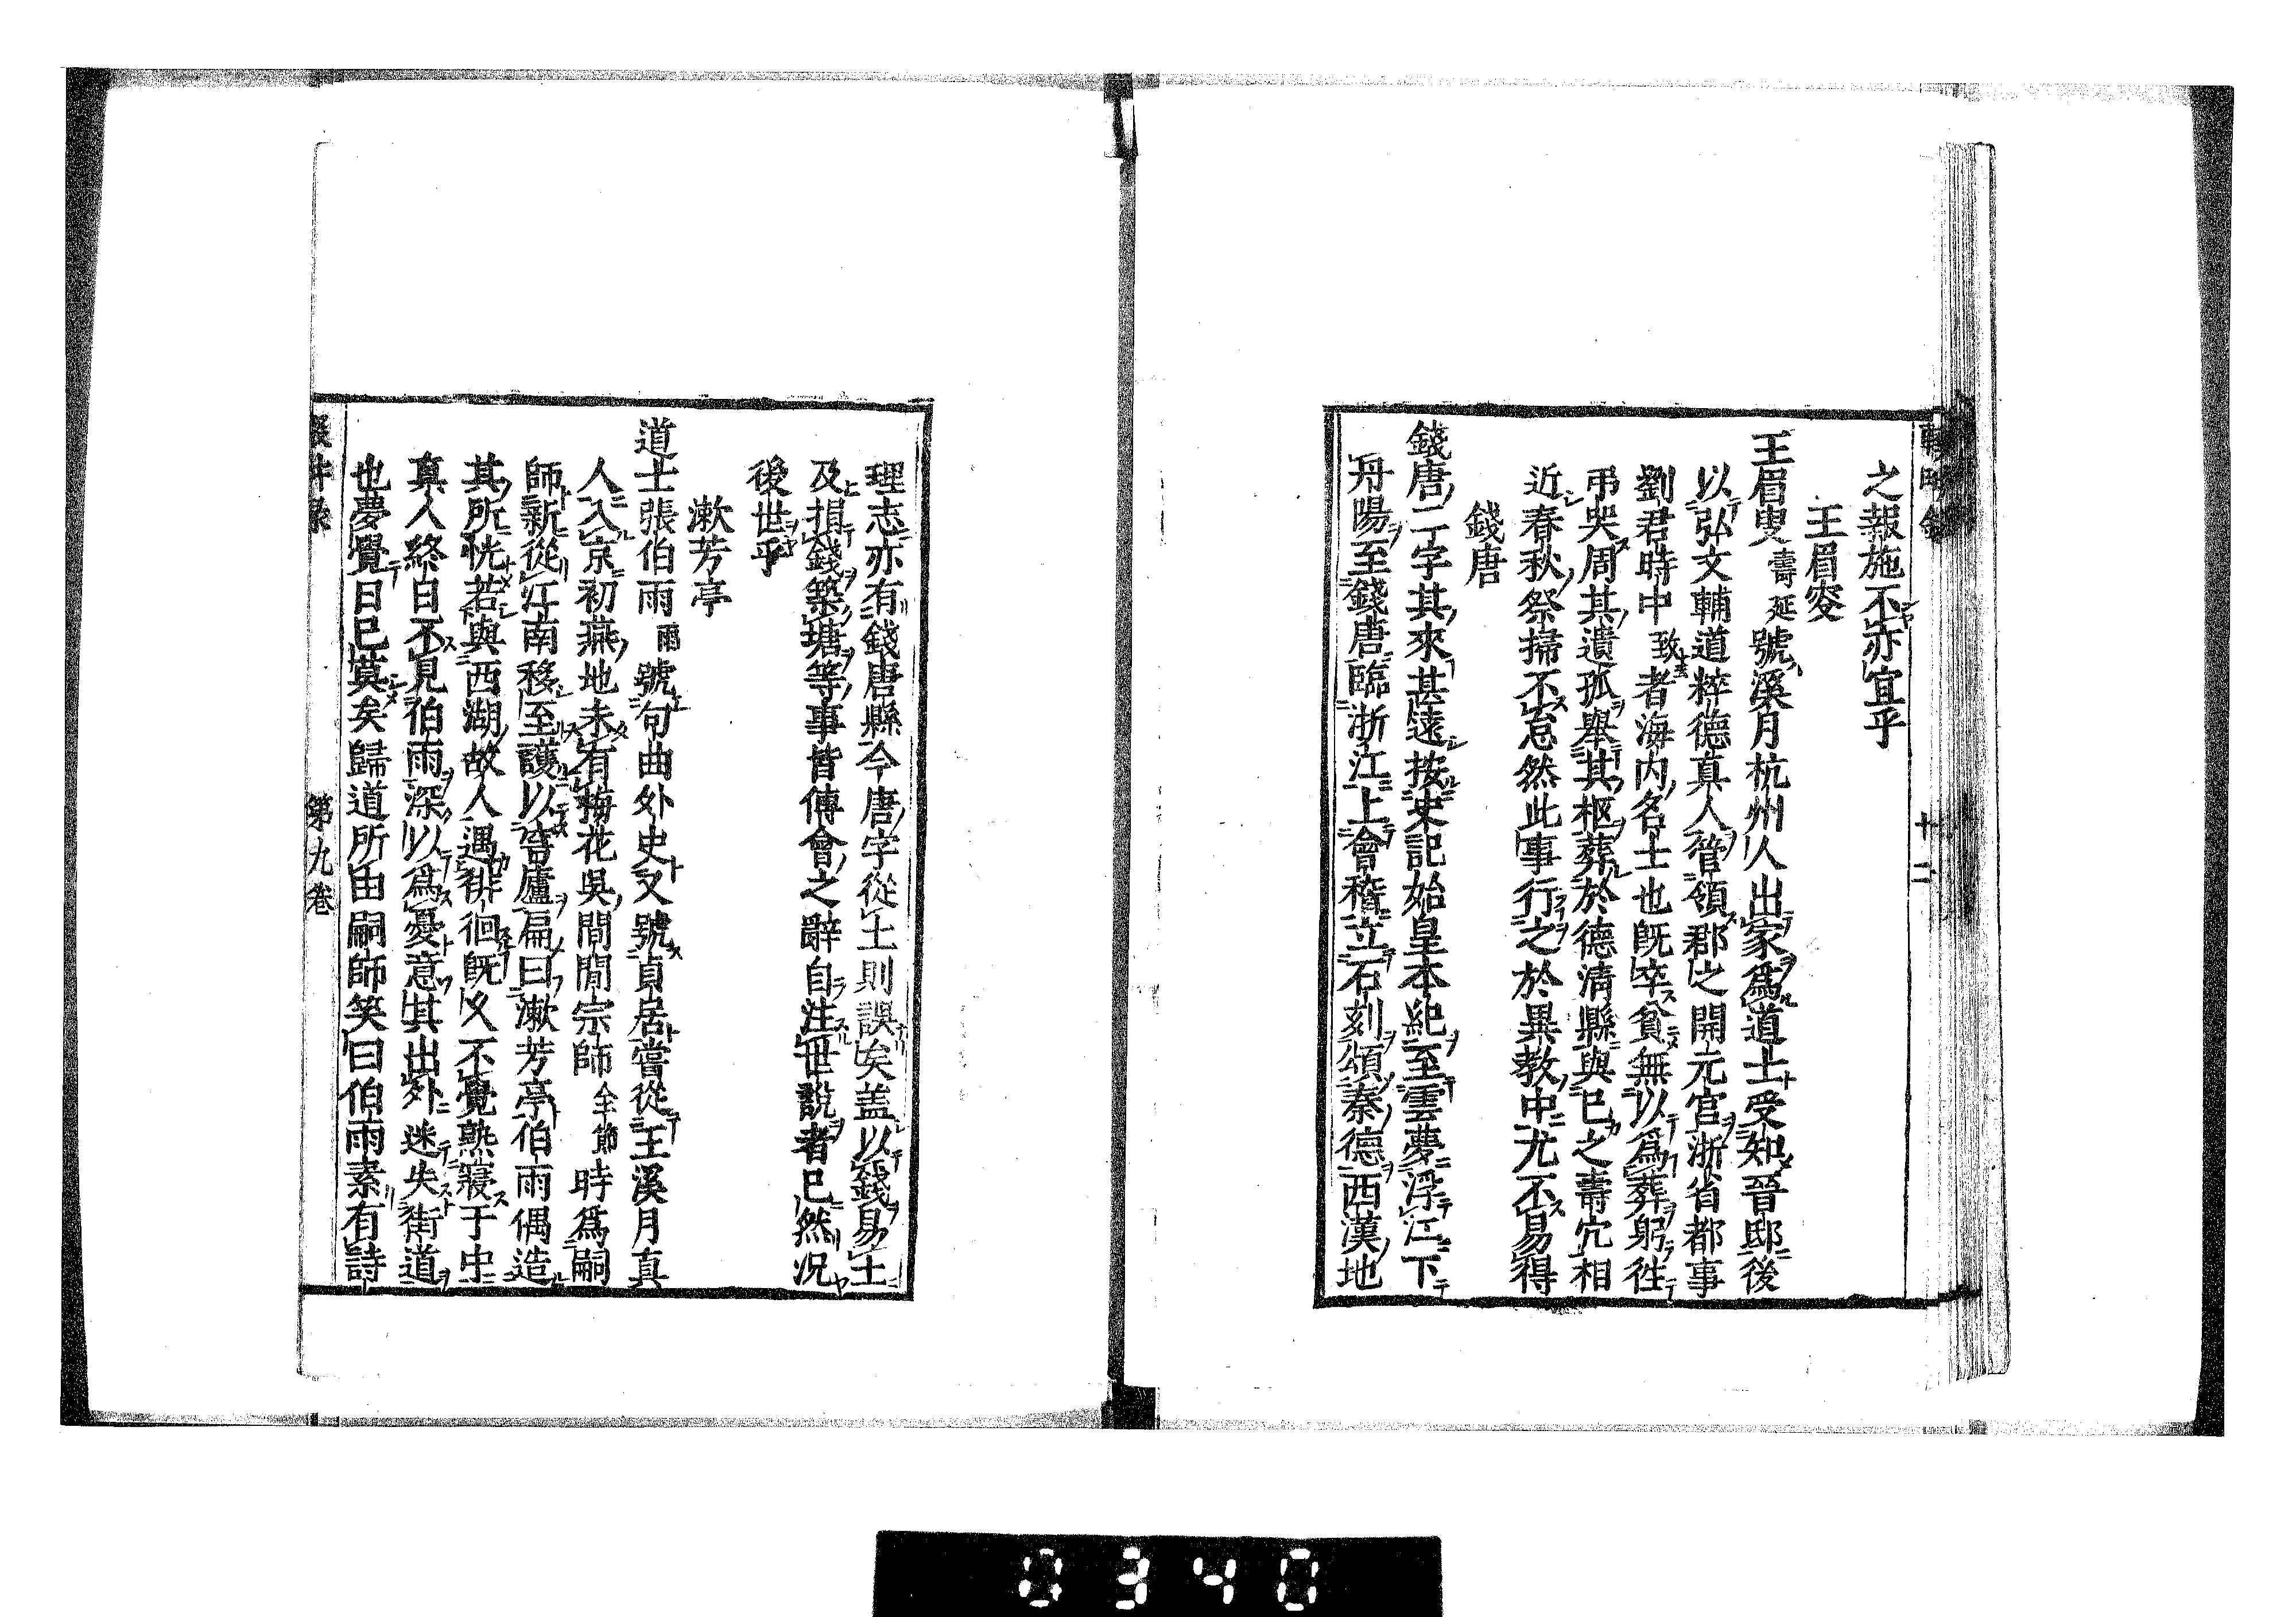 之報施不亦宜乎
王眉叟
王眉叟壽延號溪月杭州人出家爲道士受知晉邸後
以弘文輔道粹德真人管領郡之開元宮浙省都事
劉君時中致者海内名士也既卒貧無以爲葬躬往
弔哭周其遺孤舉其柩葬於德清縣與已之壽穴相
近春秋祭掃不怠然此事行之於異教中尤不易得
錢唐
錢唐二字其來甚遠按史記始皇本紀至雲夢浮江下
丹陽至錢唐臨浙江上會稽立石刻頌秦德西漢地
十二
理志亦有錢唐縣今唐字從土則誤矣盖以錢易土
及捐錢築塘等事皆傅會之辭自注世說者已然况
後世乎
漱芳亭
道士張伯雨雨號句曲外史又號貞居嘗從王溪月真
人入京初燕地未有梅花吳間閒宗師全節時爲嗣
師新從江南移至護以穹廬扁曰漱芳亭伯雨偶造
其所恍若與西湖故人遇徘徊既久不覺熟寢于中
真人終日不見伯雨深以爲憂意其出外迷失街道
也夢覺日已莫矣歸道所由嗣師笑曰伯雨素有詩
第九卷
0340